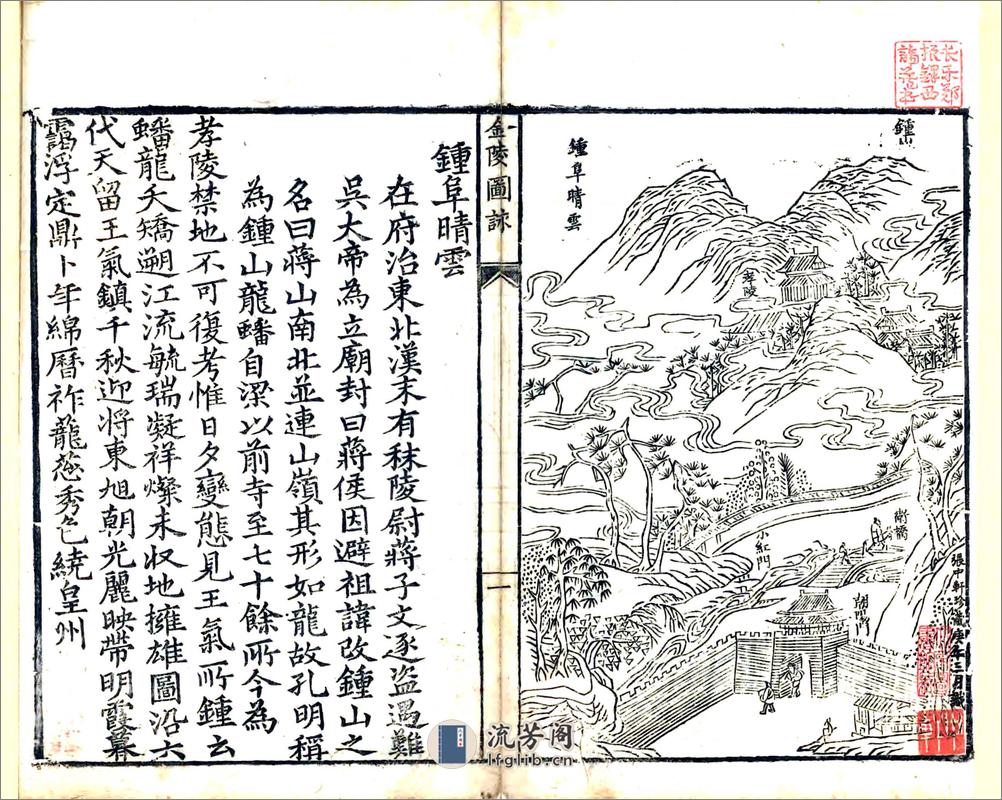 鍾山
鍾阜晴雲
孝陵
小紅門
衕橋
朝陽門
張中軒珍藏庚午三月識
長乐鄭
振鐸西
諦藏書
金陵圖詠
一
鍾阜晴雲
在府治東北漢末有秣陵尉蔣子文逐盜遇難
吳大帝為立廟封曰蔣侯因避祖諱改鍾山之
名曰蔣山南北並連山嶺其形如龍故孔明稱
為鍾山龍蟠自梁以前寺至七十餘所今為
孝陵禁地不可復考惟日夕變態見王氣所鍾云
蟠龍夭矯遡江流毓瑞凝祥燦未収地擁雄圖沿六
代天留王氣鎮千秋迎將東旭朝光麗映帶明霞暮
靄浮定鼎卜年綿曆祚蘢蔥秀色繞皇州
流芳阁
lfglib.cn